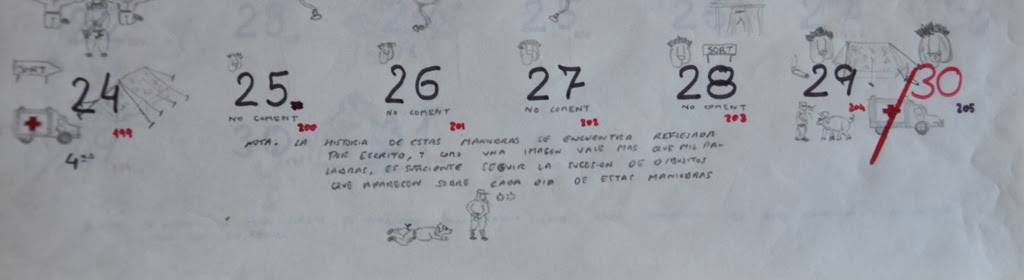 SORT
SORT
24 25. 26 27 28 29. 30
NO COMENT NO COMENT NO COMENT NO COMENT
199 200 201 202 203 204 205
NOTA. LA HISTORIA DE ESTAS MANIOBRAS SE ENCUENTRA REFLEJADA
POR ESCRITO, Y COMO UNA IMAGEN VALE MAS QUE MIL PA-
LABRAS, ES SUFICIENTE SEGUIR LA SUCESION DE DIBUJITOS
QUE APARECEN SOBRE CADA DIA DE ESTAS MANIOBRAS